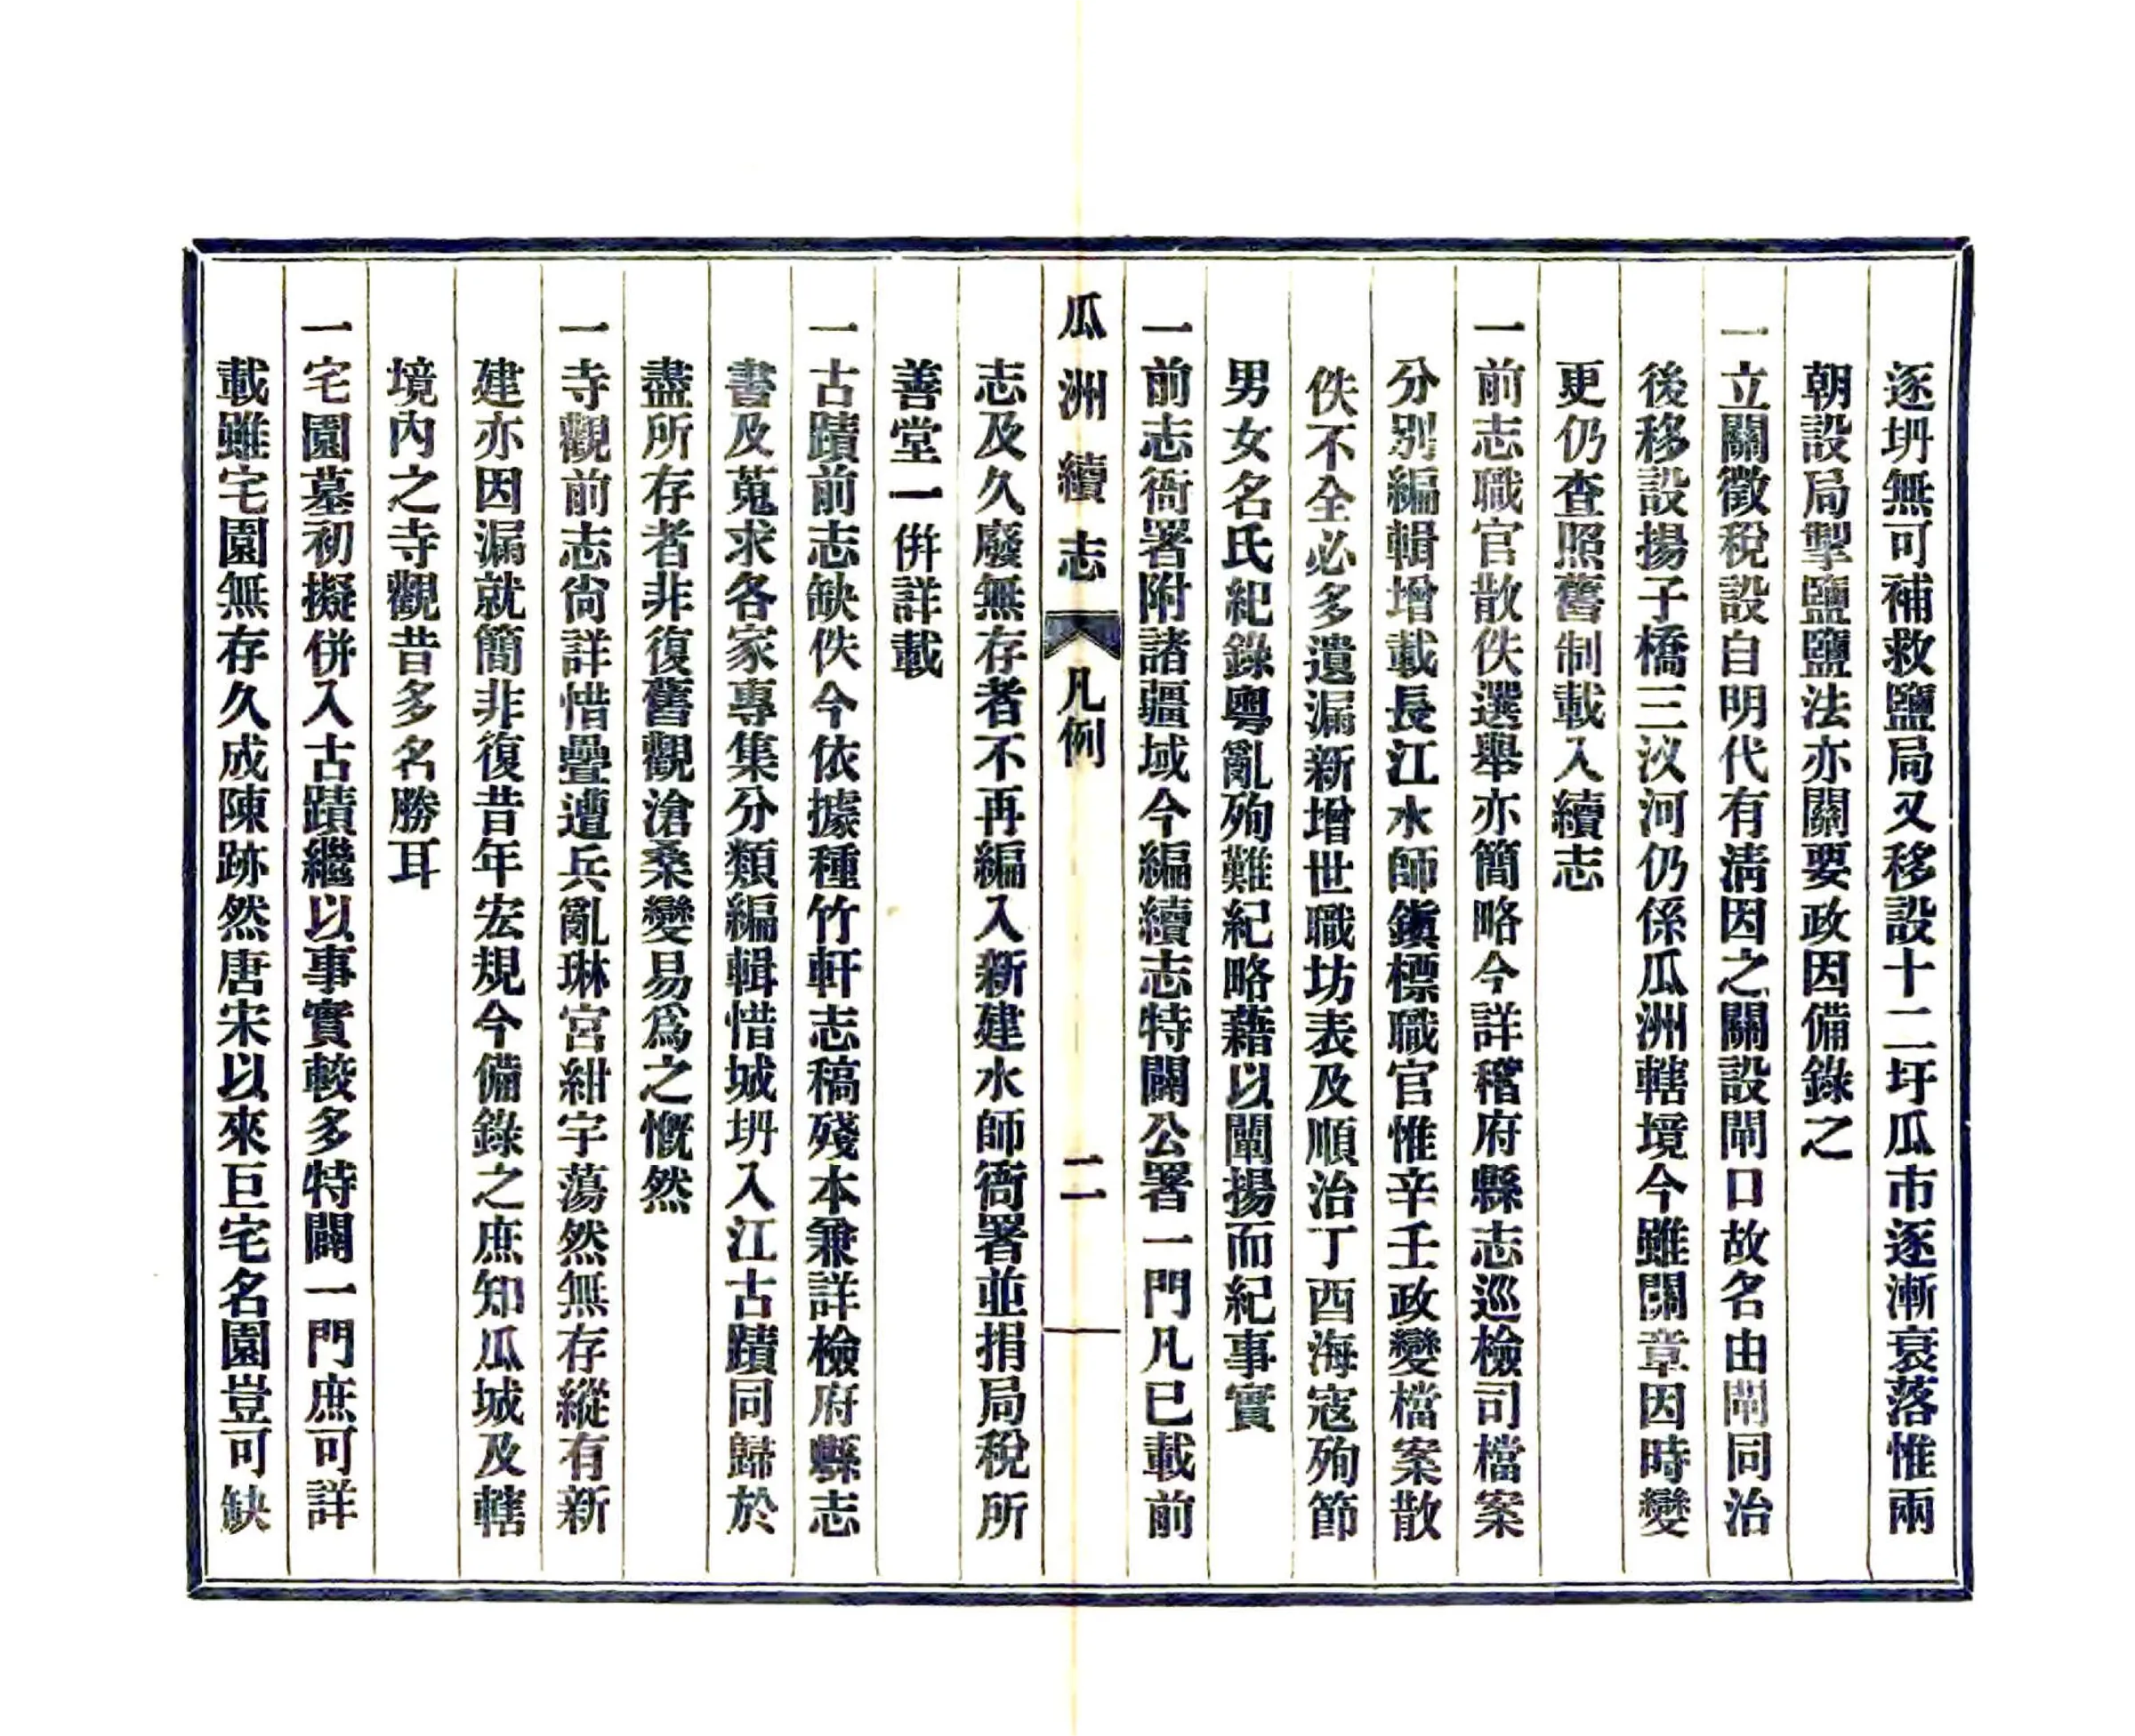 逐坍無可補救鹽局又移設十二圩瓜市逐漸衰落惟兩
朝設局掣鹽鹽法亦關要政因備錄之
一立關徵稅設自明代有淸因之關設閘口故名由閘同治
後移設揚子橋三汊河仍係瓜洲轄境今雖關章因時變
更仍查照舊制載入續志
一前志職官散佚選舉亦簡略今詳稽府縣志巡檢司檔案
分別編輯增載長江水師鎭標職官惟辛壬政變檔案散
佚不全必多遺漏新增世職坊表及順治丁酉海寇殉節
男女名氏紀錄粵亂殉難紀略藉以闡揚而紀事實
一前志衙署附諸疆域今編續志特闢公署一門凡已載前
瓜洲續志 凡例 二
志及久廢無存者不再編入新建水師衙署並捐局稅所
善堂一倂詳載
一古蹟前志缺佚今依據種竹軒志稿殘本兼詳檢府縣志
書及蒐求各家專集分類編輯惜城坍入江古蹟同歸於
盡所存者非復舊觀滄桑變易爲之慨然
一寺觀前志尙詳惜疊遭兵亂琳宮紺宇蕩然無存縱有新
建亦因漏就簡非復昔年宏規今備錄之庶知瓜城及轄
境內之寺觀昔多名勝耳
一宅園墓初擬併入古蹟繼以事實較多特闢一門庶可詳
載雖宅園無存久成陳跡然唐宋以來巨宅名園豈可缺